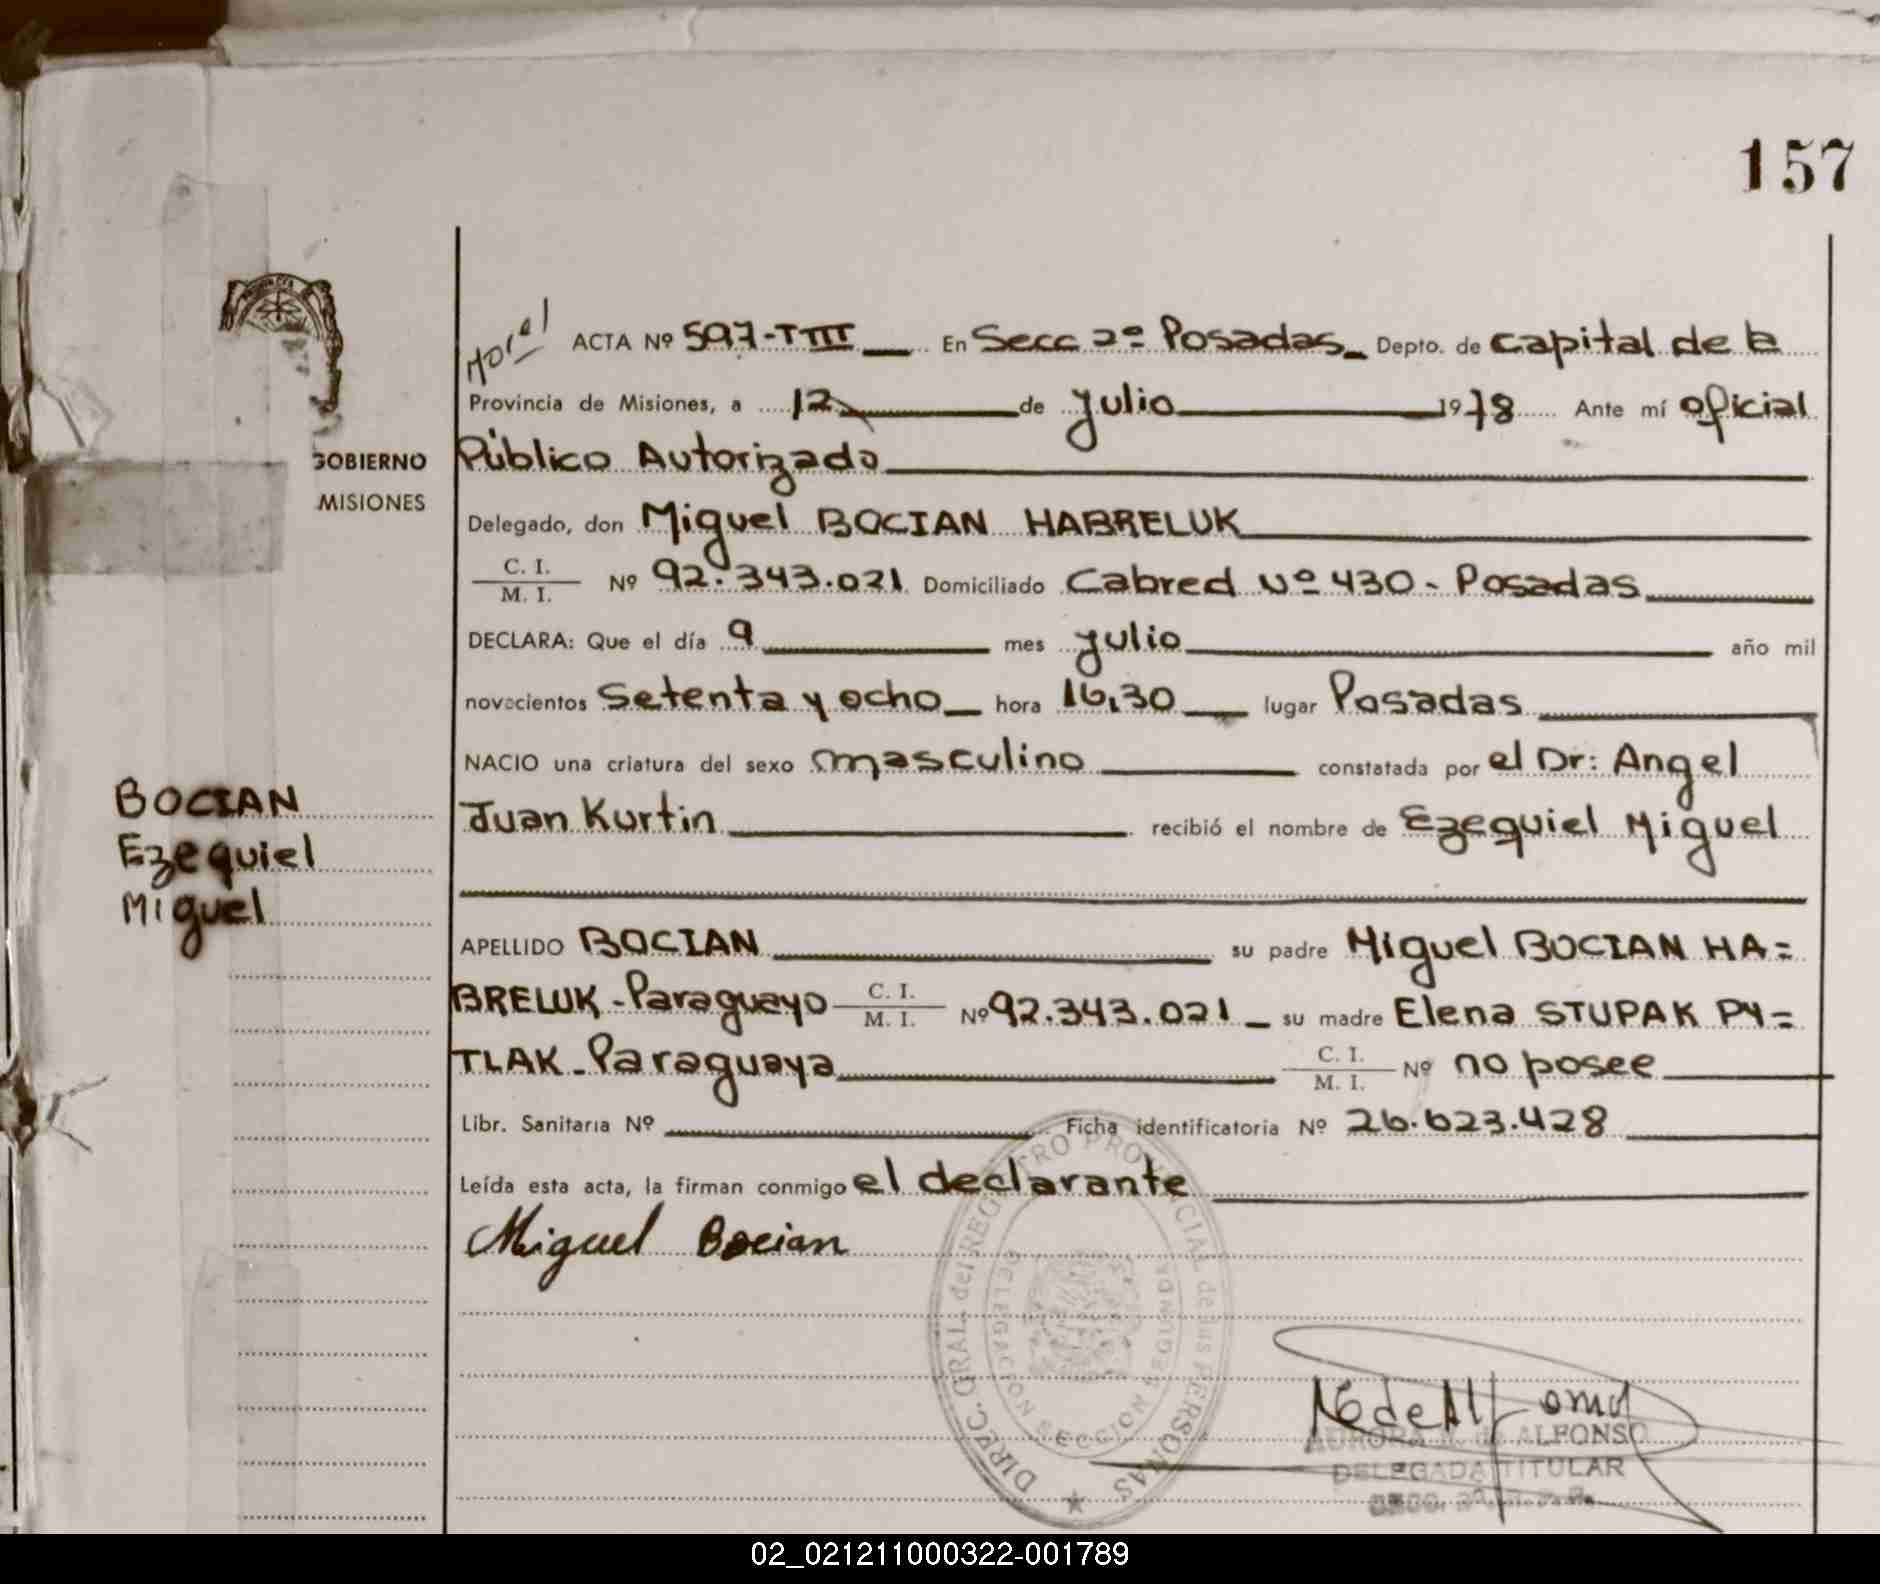 157
ACTA Nº 597-TIII En Secc 2º Posadas Depto. de Capital de la
Provincia de Misiones, a 12 de Julio 1978 Ante mí oficial
GOBIERNO
MISIONES
Público Autorizado
Delegado, don Miguel BOCIAN HABRELUK
C. I.
M. I. Nº 92.343.021 Domiciliado Cabred Nº 430 - Posadas
DECLARA: Que el día 9 mes Julio año mil
novecientos Setenta y ocho hora 16,30 lugar Posadas
NACIO una criatura del sexo masculino constatada por el Dr: Angel
Juan Kurtin recibió el nombre de Ezequiel Miguel
BOCIAN
Ezequiel
Miguel
APELLIDO BOCIAN su padre Miguel BOCIAN HA=
BRELUK - Paraguayo C. I. / M. I. Nº 92.343.021 su madre Elena STUPAK PY=
TLAK - Paraguaya C. I. / M. I. Nº no posee
Libr. Sanitaria Nº Ficha identificatoria Nº 26.623.428
Leída esta acta, la firman conmigo el declarante
Miguel Bocian
DIREC. GRAL. del REGISTRO PROVINCIAL de las PERSONAS
DELEGACION SECCION SEGUNDA
AURORA de ALFONSO
DELEGADA TITULAR
02_021211000322-001789